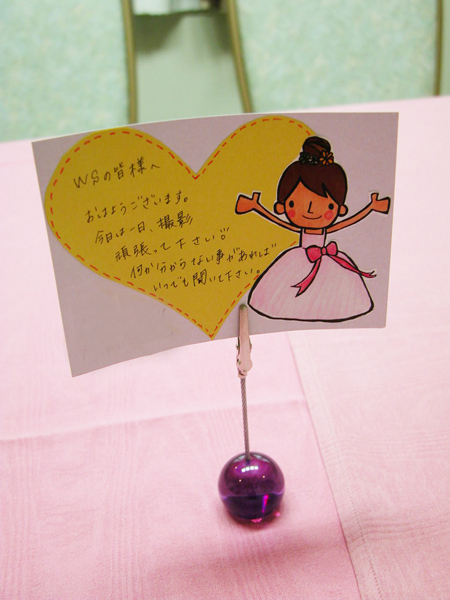 WSの皆様へ
おはようございます。
今日は一日、撮影
頑張って下さい!!
何か分からない事があれば
いつでも聞いて下さい。